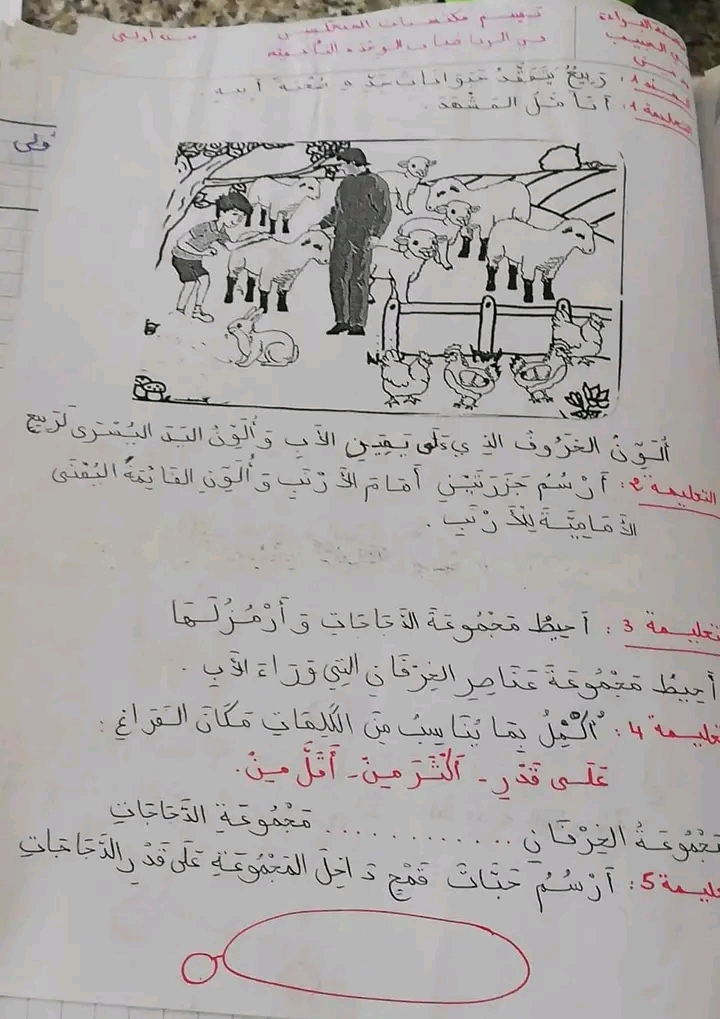 تقييم مكتسبات المتعلمين
سنة أولى
في الرياضيات الوحدة
ربيع يتفقد حيوانات جده و أبيه.
التعليمة 1: أتأمل المشهد.
ألون الخروف الذي على يمين الأب وألون اليد اليسرى لربيع
التعليمة 2: أرسم جزرتين أمام الأرنب وألون القائمة اليمنى
الأمامية للأرنب.
تعليمة 3: أحيط مجموعة الدجاجات وأرمز لها
أحيط مجموعة عناصر الخرفان التي وراء الأب.
تعليمة 4: أكمل بما يناسب من الكلمات مكان الفراغ:
على قدر - أكثر من - أقل من.
مجموعة الخرفان ............ مجموعة الدجاجات
تعليمة 5: أرسم حبات قمح داخل المجموعة على قدر الدجاجات